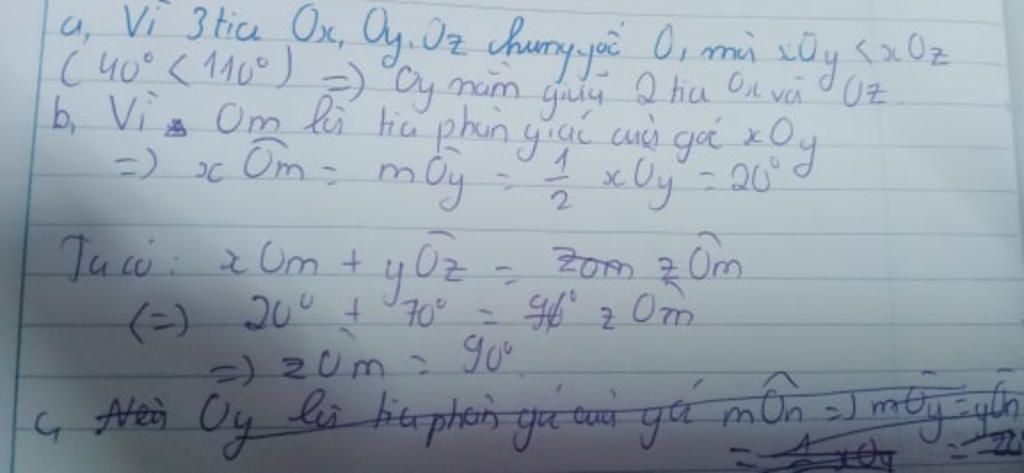 a, Vì 3 tia Ox, Oy, Oz chung gốc O, mà xOy < xOz
(40° < 110°) => Oy nằm giữa 2 tia Ox và Oz.
b, Vì Om là tia phân giác của góc xOy
=> xÔm = mÔy = 1/2 xOy = 20°
Ta có: xOm + yÔz = zom zÔm
(=) 20° + 70° = zÔm
=> zÔm = 90°
c, Nếu Oy là tia phân giá của gó mÔn => mÔy = yÔn
= 1/2 xOy =